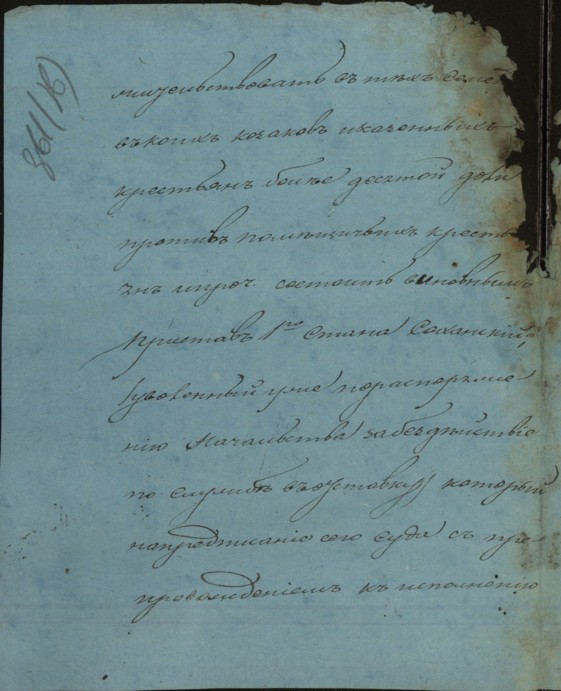 361 (16)
въ тѣхъ
въ коихъ козаковъ и казенныхъ
крестьянъ болѣе десятой доли
противъ помѣщичьихъ кресть
янъ и проч. состоитъ виновнымъ
Приставъ 1го Стана Соханскій,
(уволенный уже по распоряже
нію Начальства за бездѣйствіе
по службѣ въ отставку) который
на предписаніе сего суда съ пре
провожденіемъ къ исполненію